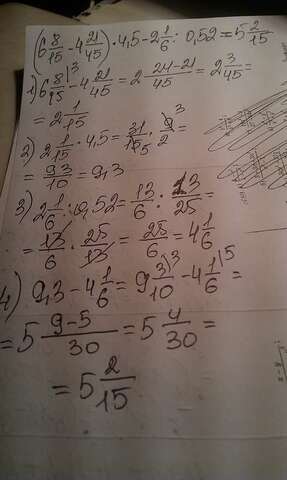 (6 8/15 - 4 21/45) · 4,5 - 2 1/6 : 0,52 = 5 2/15
1) 6 8/15 \3 - 4 21/45 = 2 24-21/45 = 2 3/45 =
= 2 1/15
2) 2 1/15 · 4,5 = 31/15 5 · 9 3/2 =
= 93/10 = 9,3
3) 2 1/6 : 0,52 = 13/6 : 13/25 =
= 13/6 · 25/13 = 25/6 = 4 1/6
4) 9,3 - 4 1/6 = 9 3/10 \3 - 4 1/6 \5 =
= 5 9-5/30 = 5 4/30 =
= 5 2/15